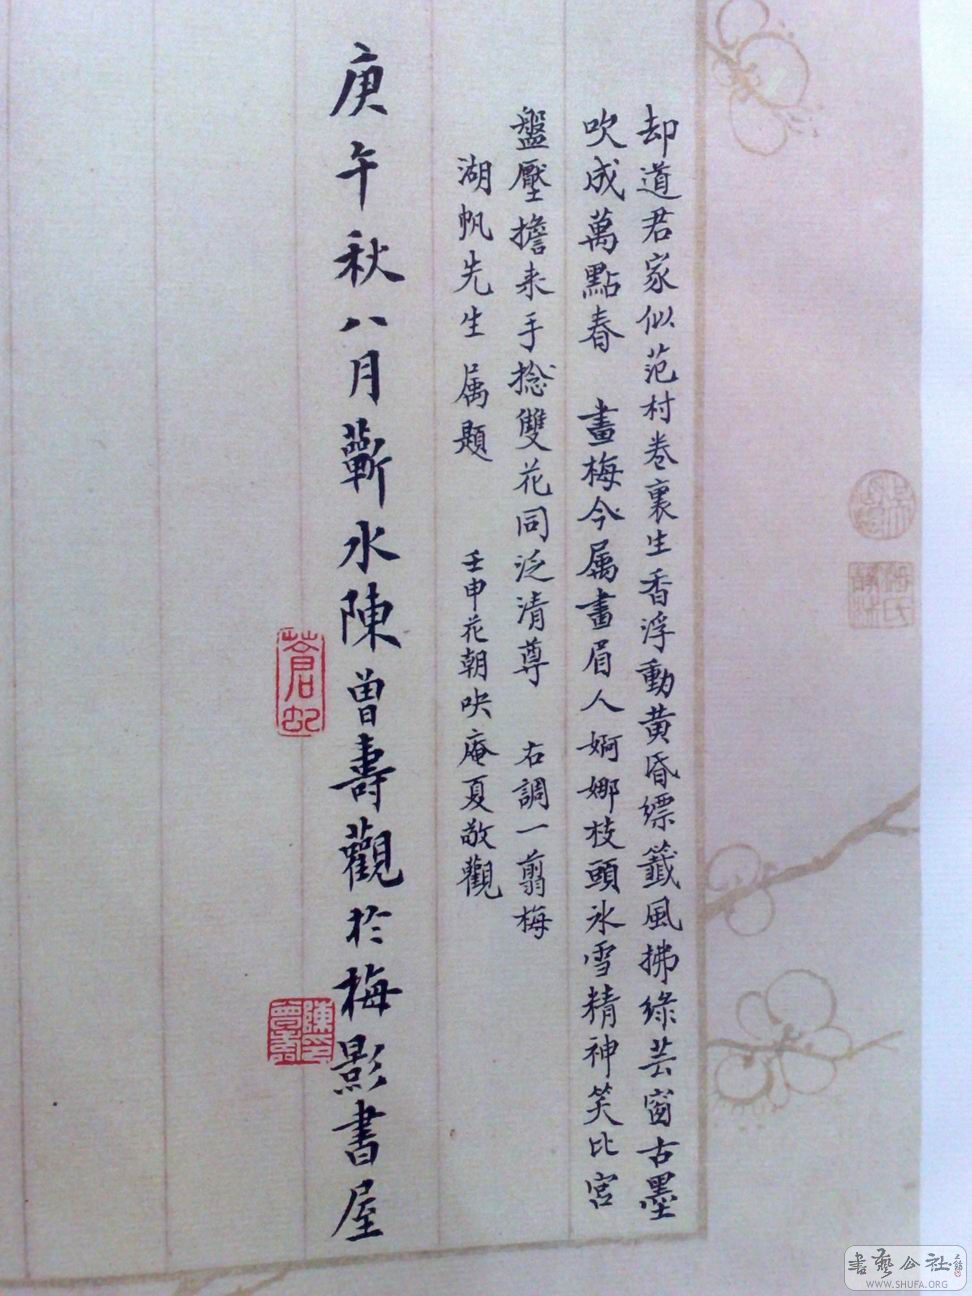 却道君家似范村卷裏生香浮動黄昏縹籤風拂綠芸窗古墨
吹成萬點春 畫梅今属畫眉人婀娜枝頭氷雪精神笑比宮
盤壓擔来手捻雙花同泛清尊 右調一翦梅
湖帆先生属題 壬申花朝吷庵夏敬觀
庚午秋八月蘄水陳曽壽觀於梅影書屋
蒼虬
陳曾壽印
書藝公社
WWW.SHUFA.ORG